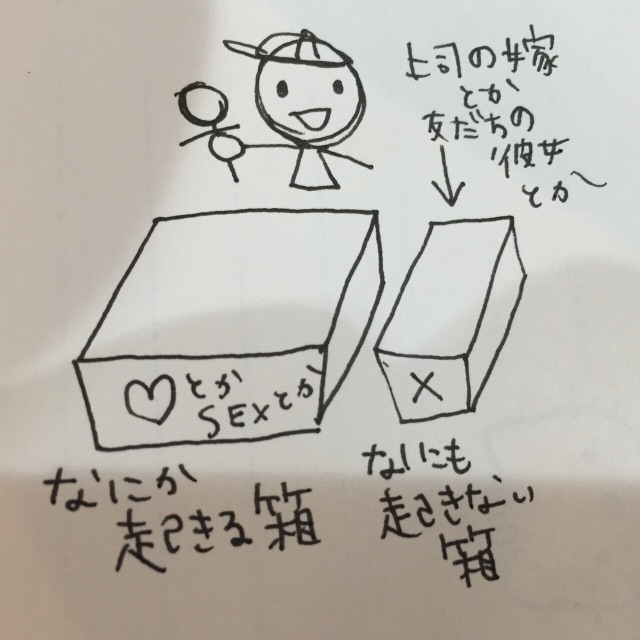 上司の嫁
とか
友だちの
彼女
とか〜
♡とか
SEXとか
X
なにか
起きる箱
なにも
起きない
箱